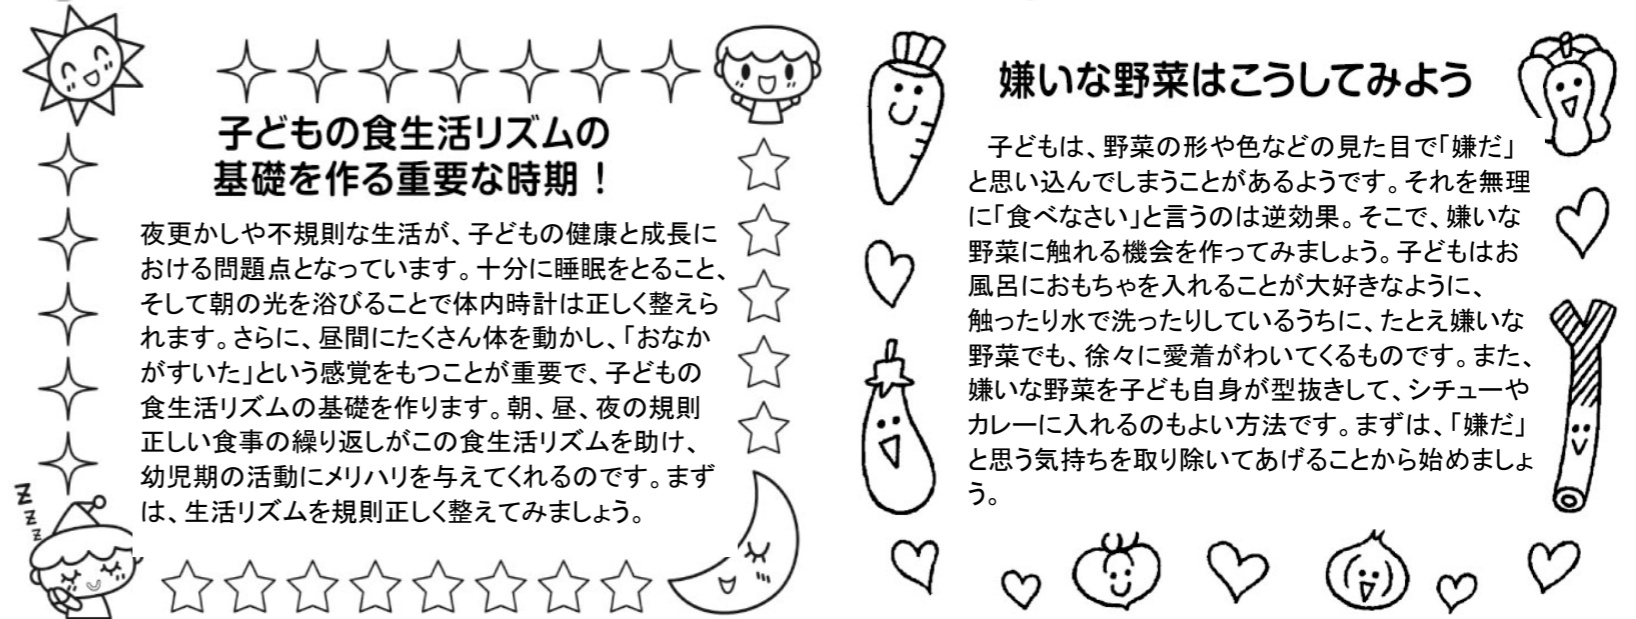 子どもの食生活リズムの
基礎を作る重要な時期！
夜更かしや不規則な生活が、子どもの健康と成長に
おける問題点となっています。十分に睡眠をとること、
そして朝の光を浴びることで体内時計は正しく整えら
れます。さらに、昼間にたくさん体を動かし、「おなか
がすいた」という感覚をもつことが重要で、子どもの
食生活リズムの基礎を作ります。朝、昼、夜の規則
正しい食事の繰り返しがこの食生活リズムを助け、
幼児期の活動にメリハリを与えてくれるのです。まず
は、生活リズムを規則正しく整えてみましょう。
z
z
z
z
嫌いな野菜はこうしてみよう
子どもは、野菜の形や色などの見た目で「嫌だ」
と思い込んでしまうことがあるようです。それを無理
に「食べなさい」と言うのは逆効果。そこで、嫌いな
野菜に触れる機会を作ってみましょう。子どもはお
風呂におもちゃを入れることが大好きなように、
触ったり水で洗ったりしているうちに、たとえ嫌いな
野菜でも、徐々に愛着がわいてくるものです。また、
嫌いな野菜を子ども自身が型抜きして、シチューや
カレーに入れるのもよい方法です。まずは、「嫌だ」
と思う気持ちを取り除いてあげることから始めましょ
う。